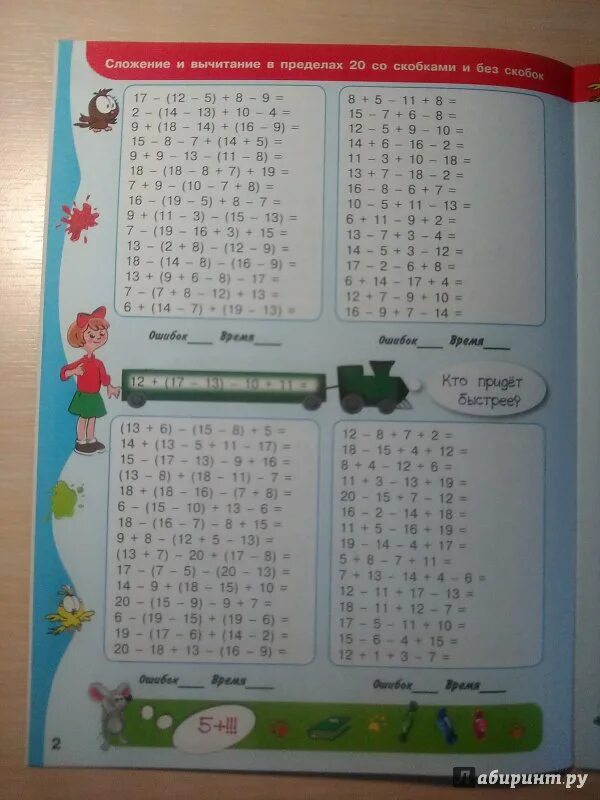 Сложение и вычитание в пределах 20 со скобками и без скобок
17 - (12 - 5) + 8 - 9 =
2 - (14 - 13) + 10 - 4 =
9 + (18 - 14) + (16 - 9) =
15 - 8 - 7 + (14 + 5) =
9 + 9 - 13 - (11 - 8) =
18 - (18 - 8 + 7) + 19 =
7 + 9 - (10 - 7 + 8) =
16 - (19 - 5) + 8 - 7 =
9 + (11 - 3) - (15 - 13) =
7 - (19 - 16 + 3) + 15 =
13 - (2 + 8) - (12 - 9) =
18 - (14 - 8) - (16 - 9) =
13 + (9 + 6 - 8) - 17 =
7 - (7 + 8 - 12) + 13 =
6 + (14 - 7) + (19 - 13) =
Ошибок____ Время____
8 + 5 - 11 + 8 =
15 - 7 + 6 - 8 =
12 - 5 + 9 - 10 =
14 + 6 - 16 - 2 =
11 - 3 + 10 - 18 =
13 + 7 - 18 - 2 =
16 - 8 - 6 + 7 =
10 - 5 + 11 - 13 =
6 + 11 - 9 + 2 =
13 - 7 + 3 - 4 =
14 - 5 + 3 - 12 =
17 - 2 - 6 + 8 =
6 + 14 - 17 + 4 =
12 + 7 - 9 + 10 =
16 - 9 + 7 - 14 =
Ошибок____ Время____
12 + (17 - 13) - 10 + 11 =
Кто придёт
быстрее?
(13 + 6) - (15 - 8) + 5 =
14 + (13 - 5 + 11 - 17) =
15 - (17 - 13) - 9 + 16 =
(13 - 8) + (18 - 11) - 7 =
18 + (18 - 16) - (7 + 8) =
6 - (15 - 10) + 13 - 6 =
18 - (16 - 7) - 8 + 15 =
9 + 8 - (12 + 5 - 13) =
(13 + 7) - 20 + (17 - 8) =
17 - (7 - 5) - (20 - 13) =
14 - 9 + (18 - 15) + 10 =
20 - (15 - 9) - 9 + 7 =
6 - (19 - 15) + (19 - 6) =
19 - (17 - 6) + (14 - 2) =
20 - 18 + 13 - (16 - 9) =
Ошибок____ Время____
12 - 8 + 7 + 2 =
18 - 15 + 4 + 12 =
8 + 4 - 12 + 6 =
11 + 3 - 13 + 19 =
20 - 15 + 7 - 12 =
16 - 2 - 14 + 18 =
11 + 5 - 16 + 19 =
19 - 14 - 4 + 17 =
5 + 8 - 7 + 11 =
7 + 13 - 14 + 4 - 6 =
12 - 11 + 17 - 13 =
18 - 11 + 12 - 7 =
17 - 5 - 11 + 10 =
15 - 6 - 4 + 15 =
12 + 1 + 3 - 7 =
Ошибок____ Время____
5+!!!
2
Лабиринт.ру